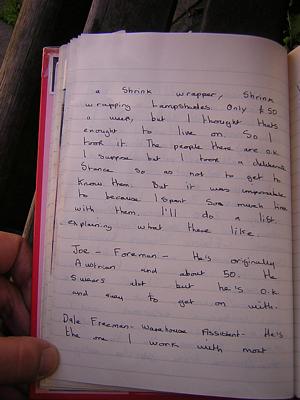 a Shrink wrapper, Shrink
wrapping Lampshades. Only £50
a week, but I thought thats
enought to live on. So I
took it. The people there are o.k
I suppose but I took a deliberate
Stance so as not to get to
Know them. But it was impossable
to because I spent Sore much time
with them. I'll do a list,
explaining what there like.
Joe - Foreman - He's originally
Austrian and about 50. He
swears alot but he's o.k
and easy to get on with.
Dale Freeman - Warehouse Assistent - He's
the one I work with most